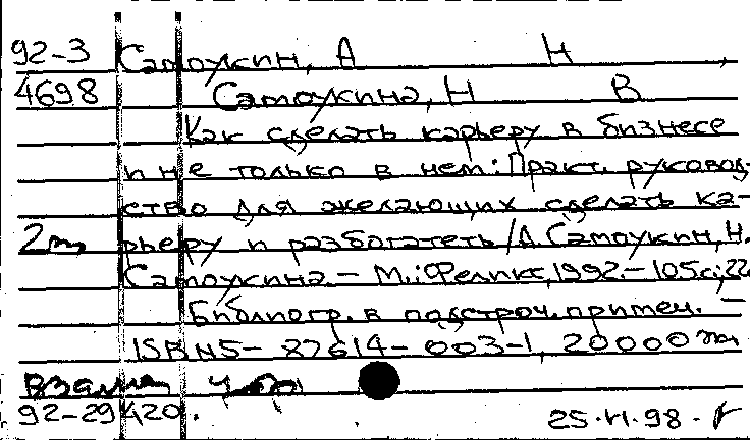 92-3 Самоукин, А Н
4698 Самоукина, Н В
Как сделать карьеру в бизнесе
и не только в нем: Практ. руковод-
ство для желающих сделать ка-
2т рьеру и разбогатеть / А. Самоукин, Н.
Самоукина. – М.: Феликс, 1992. – 105 с.; 22
Библиогр. в подстроч. примеч. –
ISBN 5-87614-003-1, 20000
Взамен
92-29420.
25.11.98.